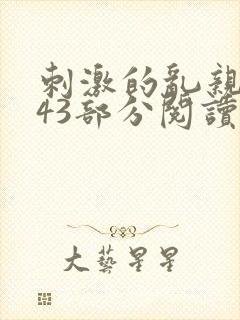 刺激的乱親
43部分閱讀
大藝星星